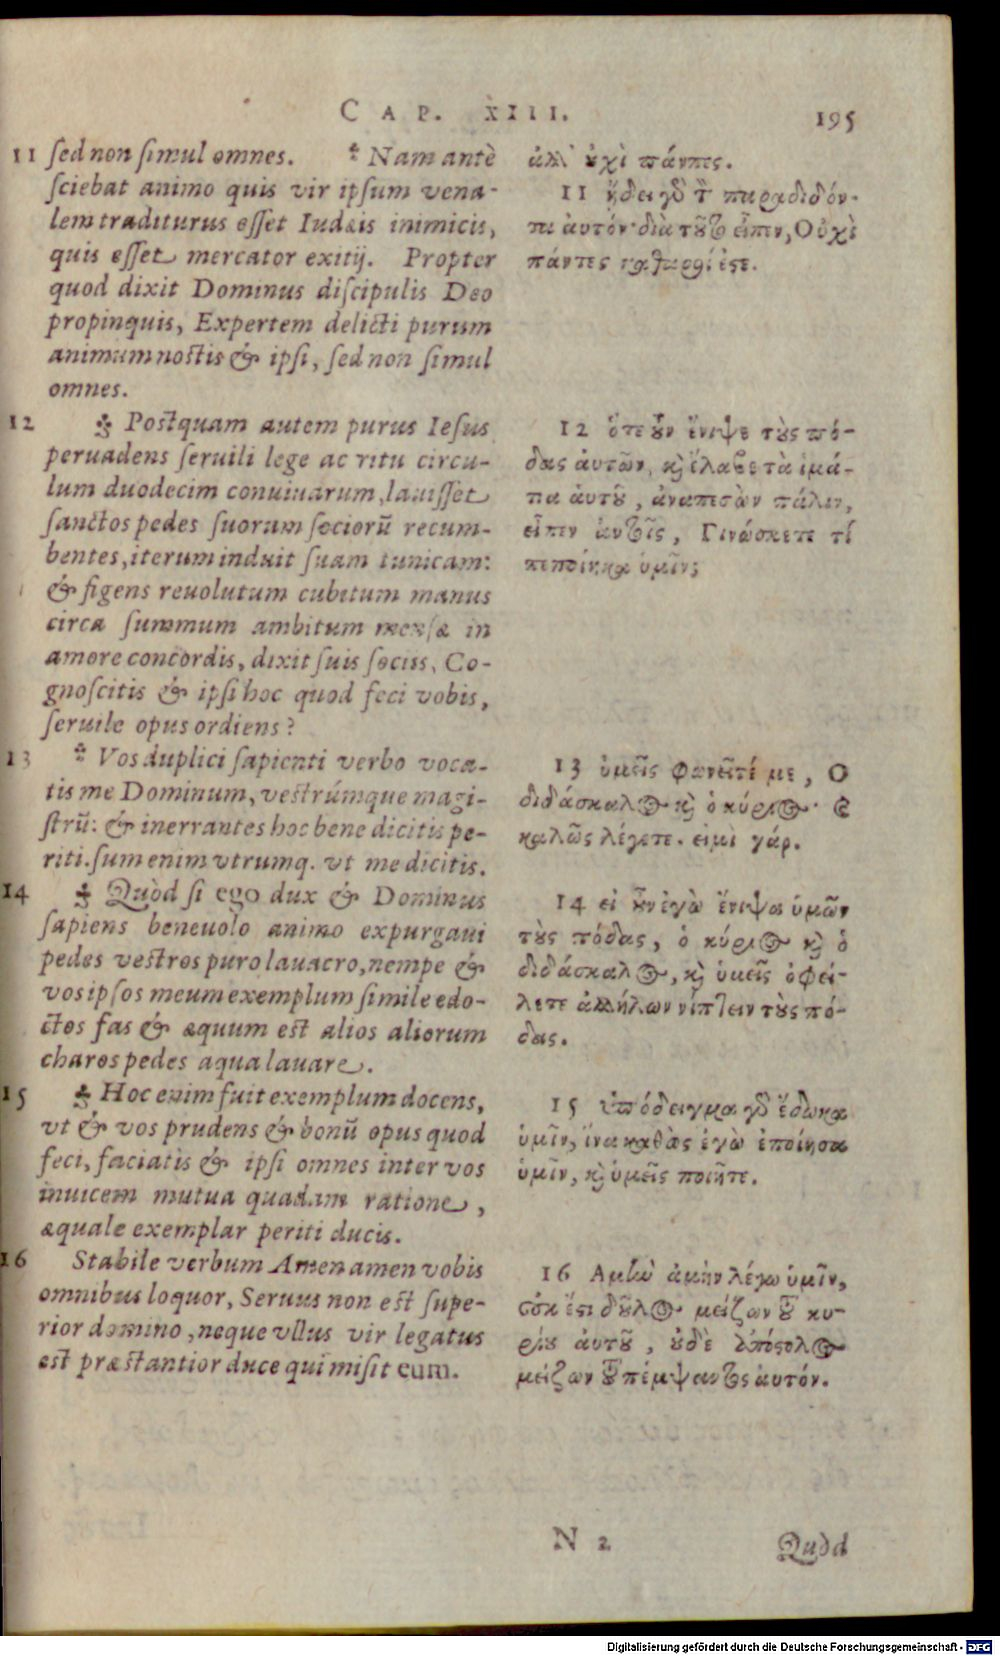 CAP. XIII. 195
11 sed non simul omnes. Nam antè
sciebat animo quis vir ipsum vena-
lem traditurus esset Iudæis inimicis,
quis esset mercator exitij. Propter
quod dixit Dominus discipulis Deo
propinquis, Expertem delicti purum
animum nostis & ipsi, sed non simul
omnes.
12 Postquam autem purus Iesus
peruadens seruili lege ac ritu circu-
lum duodecim conuiuarum, lauisset
sanctos pedes suorum sociorũ recum-
bentes, iterum induit suam tunicam:
& figens reuolutum cubitum manus
circa summum ambitum mensæ in
amore concordis, dixit suis sociis, Co-
gnoscitis & ipsi hoc quod feci vobis,
seruile opus ordiens?
13 Vos duplici sapienti verbo voca-
tis me Dominum, vestrúmque magi-
strũ: & inerrantes hoc bene dicitis pe-
riti. sum enim vtrumq. vt me dicitis.
14 Quòd si ego dux & Dominus
sapiens beneuolo animo expurgaui
pedes vestros puro lauacro, nempe &
vos ipsos meum exemplum simile edo-
ctos fas & æquum est alios aliorum
charos pedes aqua lauare.
15 Hoc enim fuit exemplum docens,
vt & vos prudens & bonũ opus quod
feci, faciatis & ipsi omnes inter vos
inuicem mutua quadam ratione,
æquale exemplar periti ducis.
16 Stabile verbum Amen amen vobis
omnibus loquor, Seruus non est supe-
rior domino, neque vllus vir legatus
est præstantior duce qui misit eum.
ἀλλ' οὐχὶ πάντες.
11 ᾔδει γὸ τὸν παραδιδόν-
τα αὐτόν· διὰ τοῦτο εἶπεν, Οὐχὶ
πάντες καθαροί ἐστε.
12 ὅτε οὖν ἔνιψε τοὺς πό-
δας αὐτῶν, καὶ ἔλαβε τὰ ἱμά-
τια αὑτοῦ, ἀναπεσὼν πάλιν,
εἶπεν αὐτοῖς, Γινώσκετε τί
πεποίηκα ὑμῖν;
13 ὑμεῖς φωνεῖτέ με, Ο
διδάσκαλος καὶ ὁ κύριος· καὶ
καλῶς λέγετε. εἰμὶ γάρ.
14 εἰ οὖν ἐγὼ ἔνιψα ὑμῶν
τοὺς πόδας, ὁ κύριος καὶ ὁ
διδάσκαλος, καὶ ὑμεῖς ὀφεί-
λετε ἀλλήλων νίπτειν τοὺς πό-
δας.
15 ὑπόδειγμα γὸ ἔδωκα
ὑμῖν, ἵνα καθὼς ἐγὼ ἐποίησα
ὑμῖν, καὶ ὑμεῖς ποιῆτε.
16 Αμὴν ἀμὴν λέγω ὑμῖν,
οὐκ ἔστι δοῦλος μείζων τοῦ κυ-
ρίου αὐτοῦ, οὐδὲ ἀπόστολος
μείζων τοῦ πέμψαντος αὐτόν.
N 2 Quòd
Digitalisierung gefördert durch die Deutsche Forschungsgemeinschaft - DFG